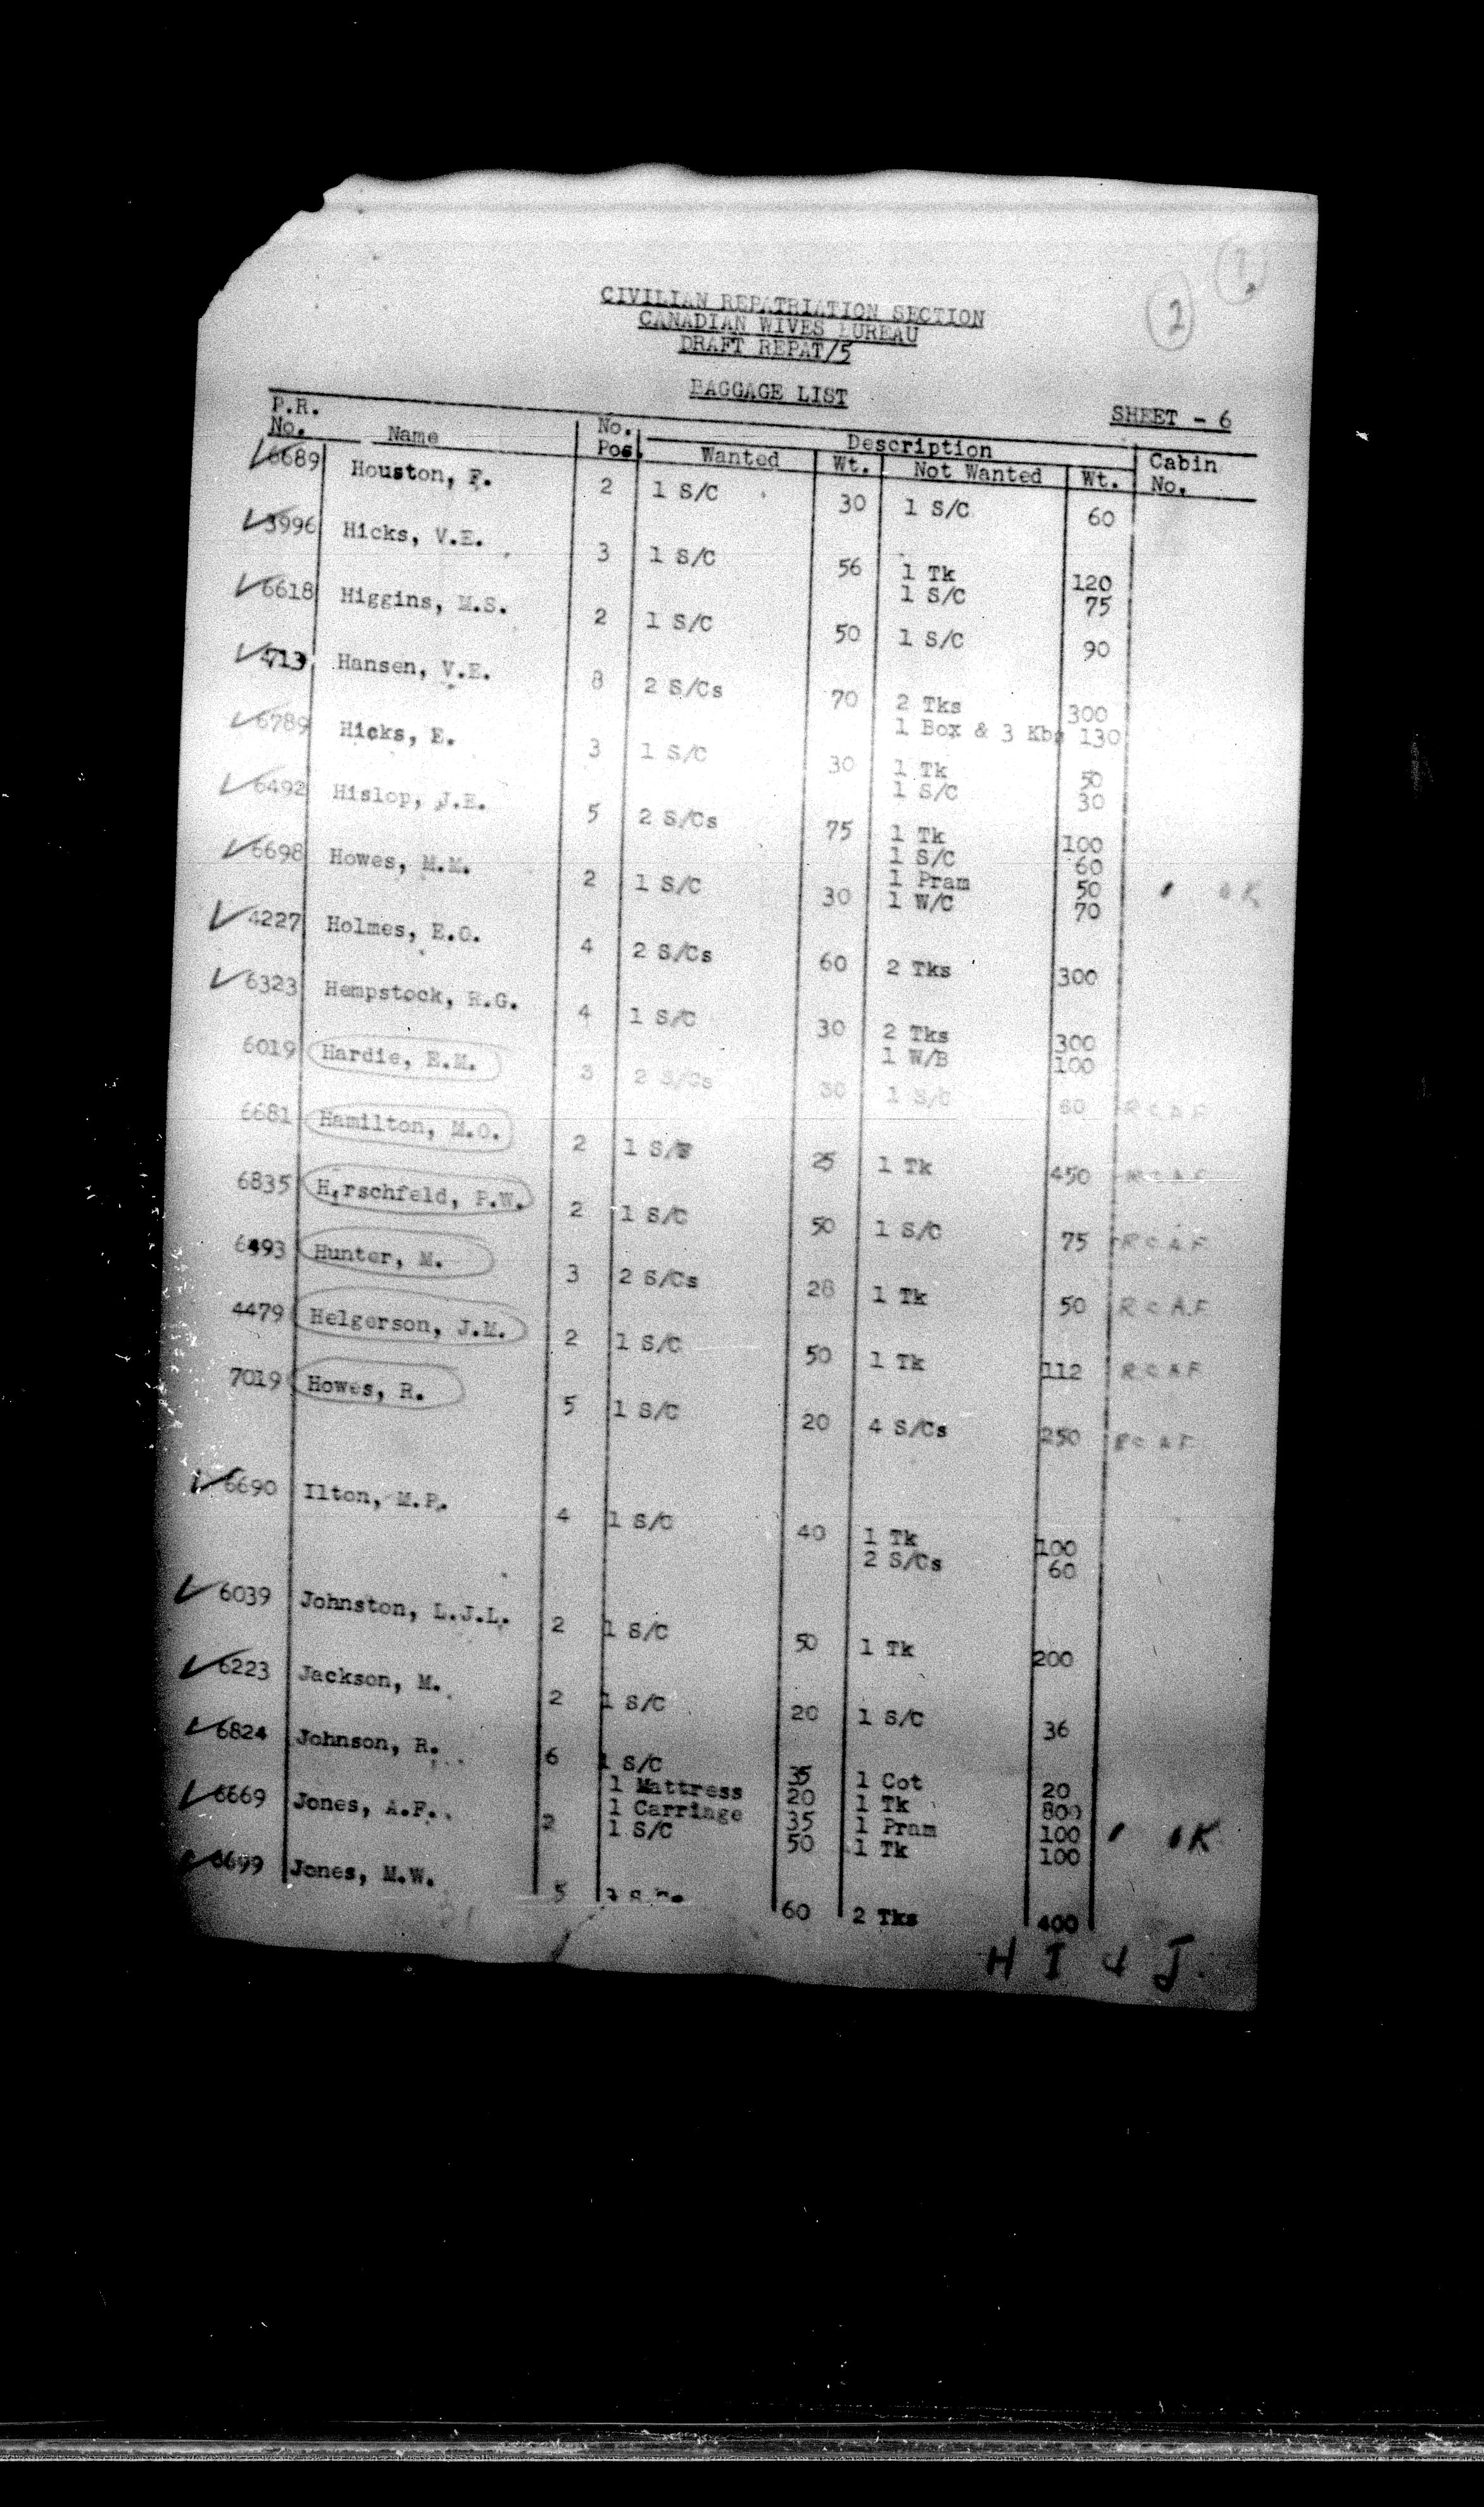 1.
2
CIVILIAN REPATRIATION SECTION
CANADIAN WIVES BUREAU
DRAFT REPAT/5
BAGGAGE LIST
SHEET - 6
P.R. No. Name No. Pcs. Description Cabin No.
Wanted Wt. Not Wanted Wt.
6689 Houston, F. 2 1 S/C 30 1 S/C 60
3996 Hicks, V.E. 3 1 S/C 56 1 Tk 120
1 S/C 75
6618 Higgins, M.S. 2 1 S/C 50 1 S/C 90
4713 Hansen, V.E. 8 2 S/Cs 70 2 Tks 300
1 Box & 3 Kbs 130
6789 Hicks, E. 3 1 S/C 30 1 Tk 50
1 S/C 30
6492 Hislop, J.E. 5 2 S/Cs 75 1 Tk 100
1 S/C 60
1 Pram 50 OK
6698 Howes, M.M. 2 1 S/C 30 1 W/C 70
4227 Holmes, E.O. 4 2 S/Cs 60 2 Tks 300
6323 Hempstock, R.G. 4 1 S/C 30 2 Tks 300
1 W/B 100
6019 Hardie, E.M. 3 2 S/Cs 30 1 S/C 60 RCAF
6681 Hamilton, M.O. 2 1 25 1 Tk 450 RCAF
6835 Hirschfeld, P.W. 2 1 S/C 50 1 S/C 75 RCAF
6493 Hunter, M. 3 2 S/Cs 28 1 Tk 50 RCAF
4479 Helgerson, J.M. 2 1 S/C 50 1 Tk 112 RCAF
7019 Howes, R. 5 1 S/C 20 4 S/Cs 250 RCAF
6690 Ilton, M.P. 4 1 S/C 40 1 Tk 100
2 S/Cs 60
6039 Johnston, L.J.L. 2 1 S/C 50 1 Tk 200
6223 Jackson, M. 2 1 S/C 20 1 S/C 36
6824 Johnson, R. 6 1 S/C 35 1 Cot 20
1 Mattress 20 1 Tk 800
1 Carriage 35 1 Pram 100 OK
6669 Jones, A.F. 2 1 S/C 50 1 Tk 100
6699 Jones, M.W. 5 60 2 Tks 400
H I & J.